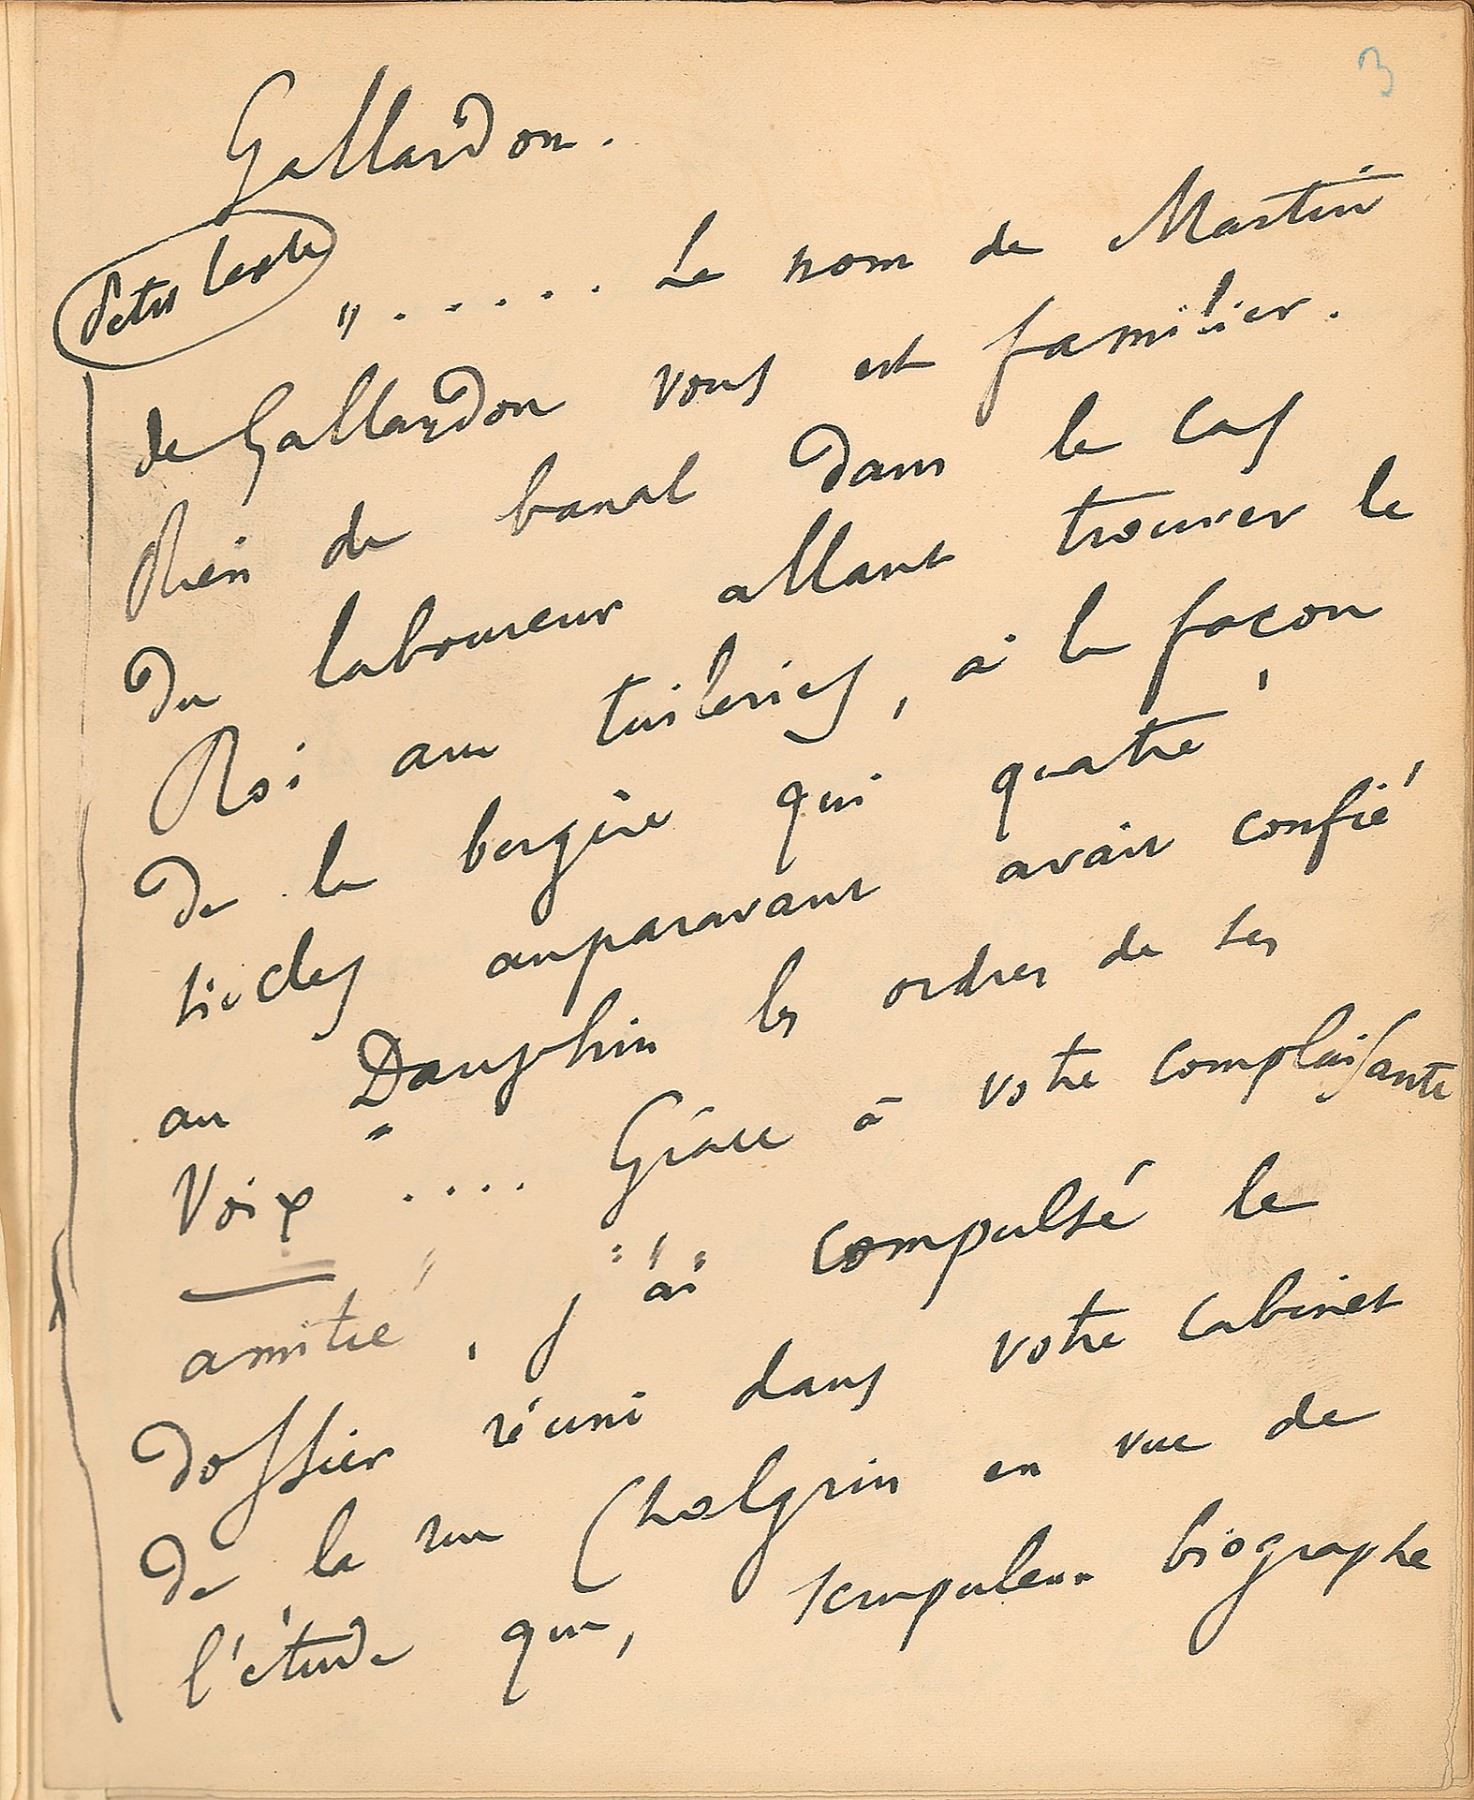 3
Gallardon.
Petit texte
" . . . . . Le nom de Martin
de Gallardon vous est familier.
Rien de banal dans le cas
du laboureur allant trouver le
Roi aux tuileries, à la façon
de la bergère qui quatre
siècles auparavant avait confié
au Dauphin les ordres de ses
Voix .... Grâce à votre complaisante
amitié, j'ai compulsé le
dossier réuni dans votre cabinet
de la rue Chalgrin en vue de
l'étude que, scrupuleux biographe